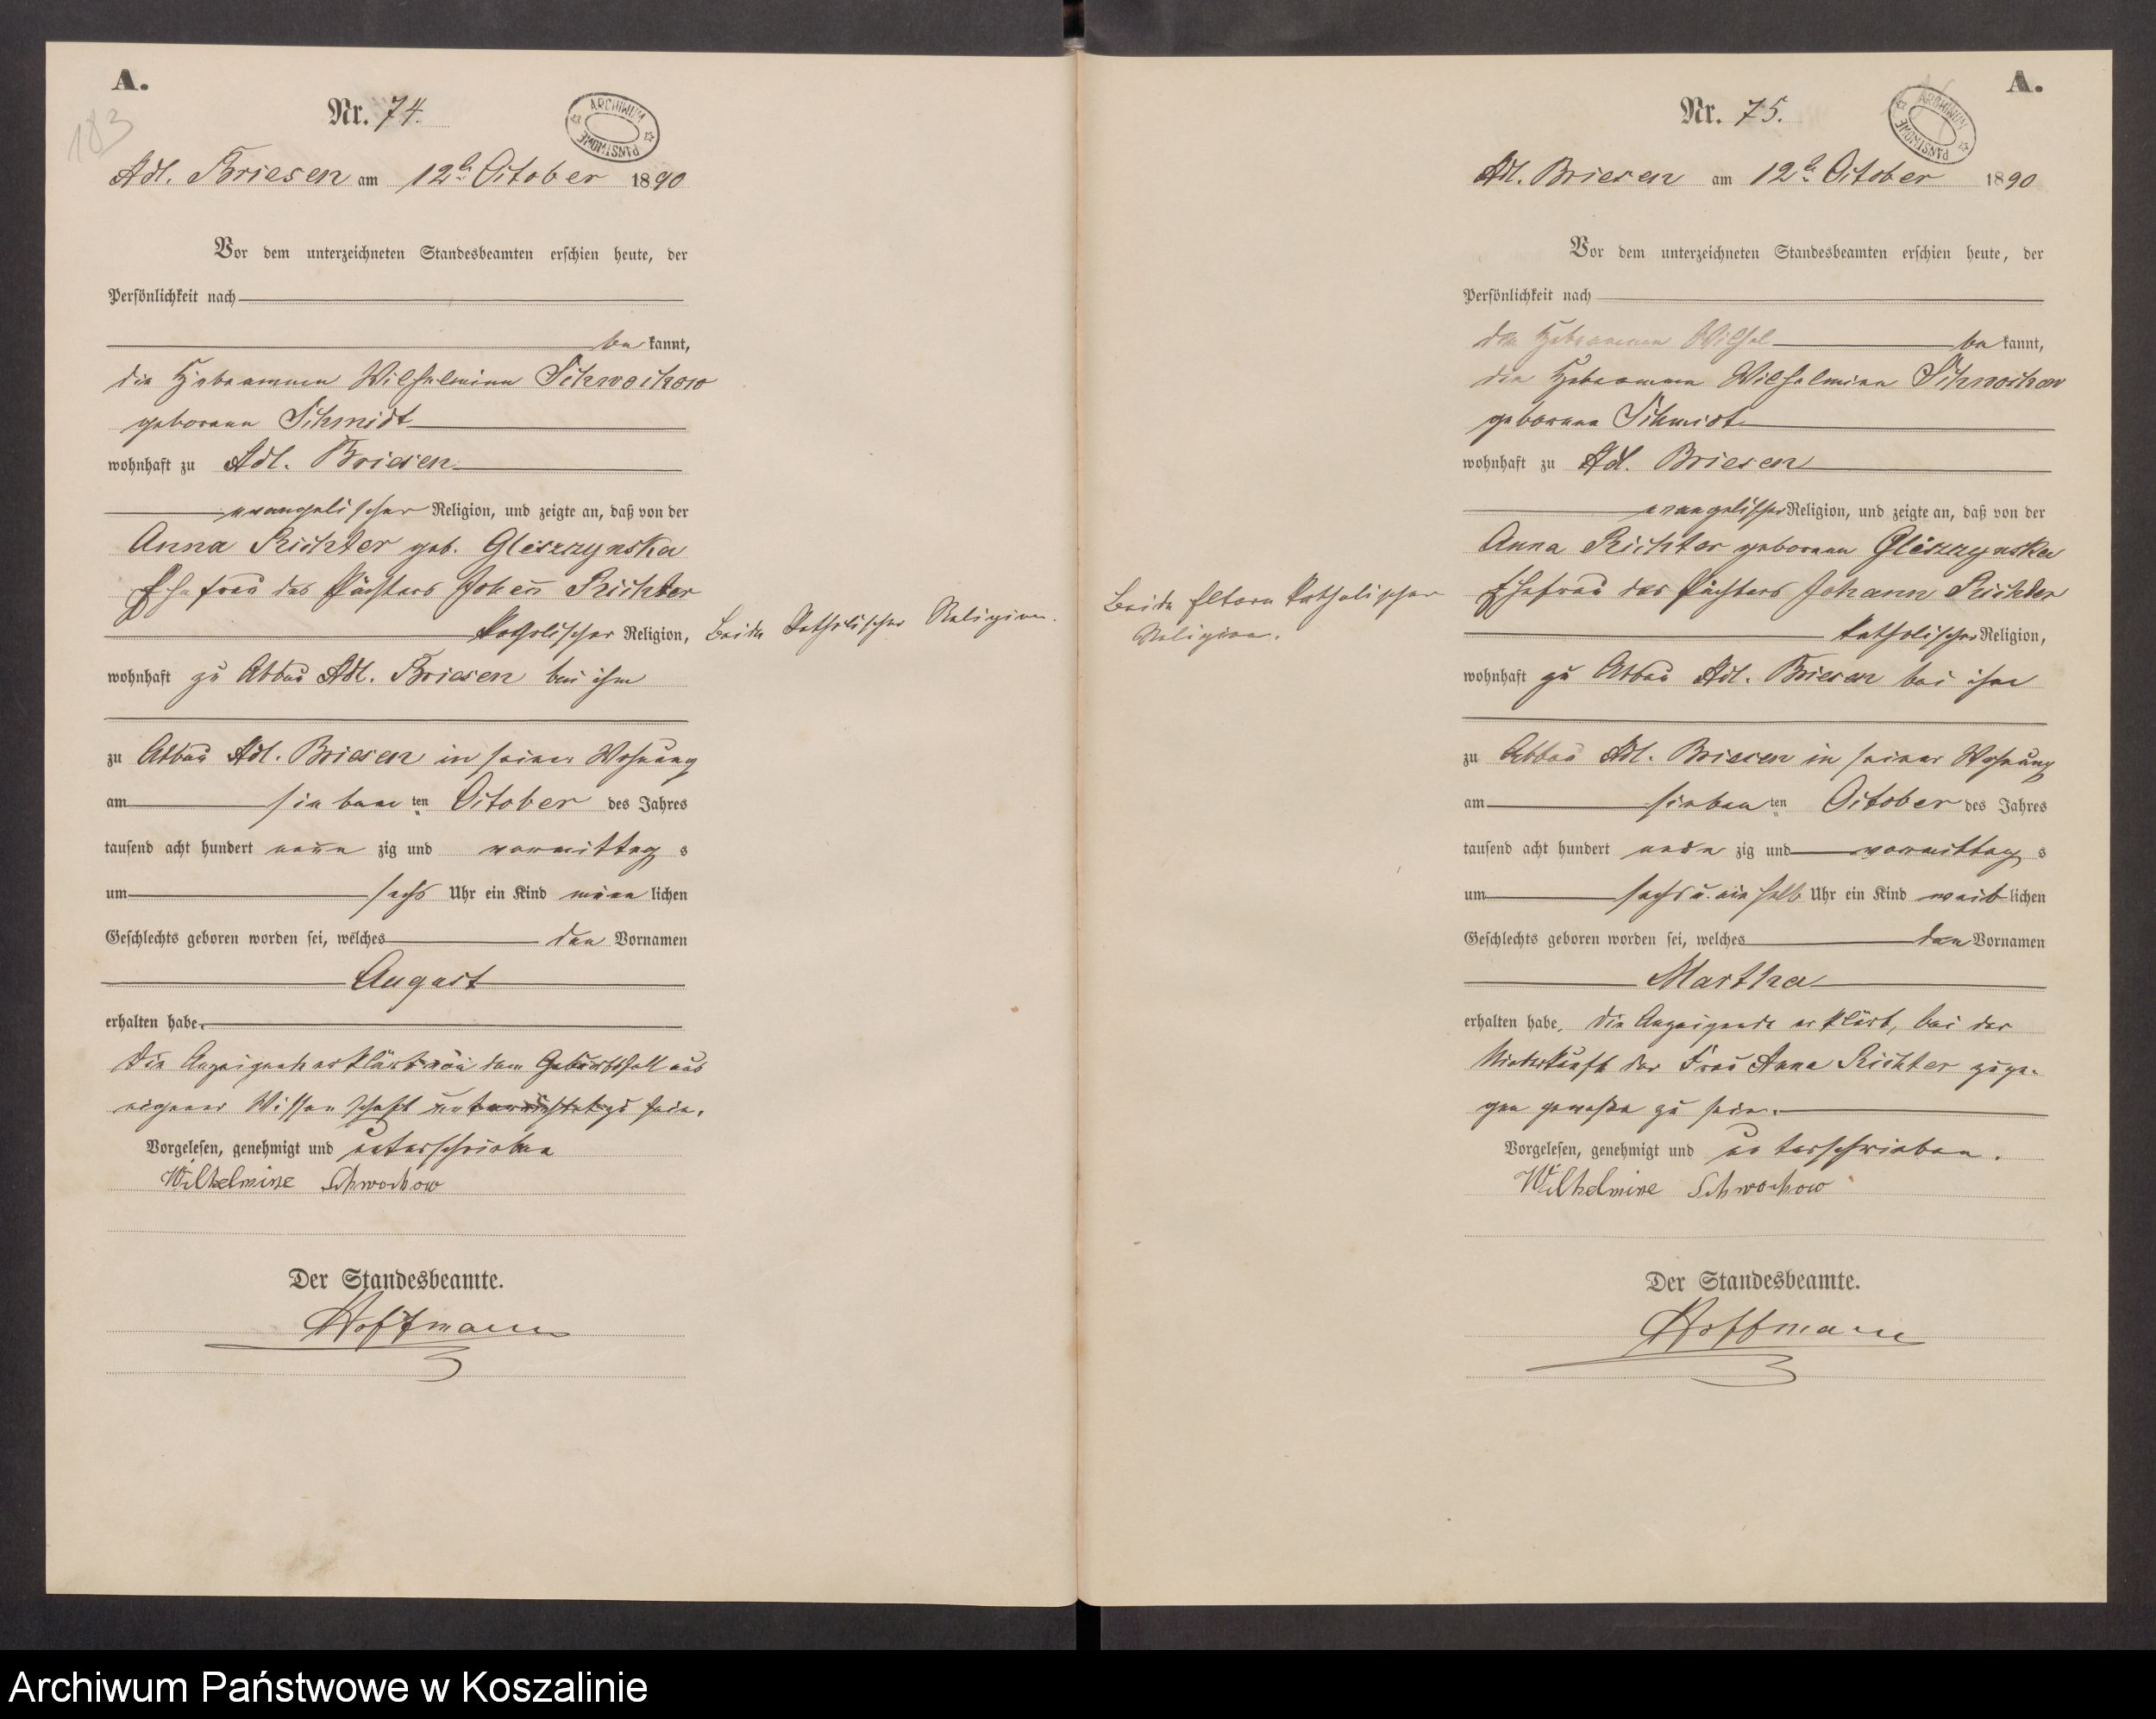 A.
183
Nr. 74.
ARCHIWUM PAŃSTWOWE
Adl. Briesen am 12t October 1890
Vor dem unterzeichneten Standesbeamten erschien heute, der
Persönlichkeit nach
be kannt,
die Hebeammen Wilhelmine Schwochow
geborene Schmidt
wohnhaft zu Adl. Briesen
evangelischer Religion, und zeigte an, daß von der
Anna Richter geb. Gliszzynska
Ehefrau des Pächters Johann Richter
katholischer Religion, beide katholischer Religion.
wohnhaft zu Abbau Adl. Briesen bei ihm
zu Abbau Adl. Briesen in seiner Wohnung
am sieben ten October des Jahres
tausend acht hundert neun zig und vormittag s
um sechs Uhr ein Kind männ lichen
Geschlechts geboren worden sei, welches den Vornamen
August
erhalten habe.
Die Anzeigende erklärt von dem Geburtsfall aus
eigener Wissenschaft unterrichtet zu sein.
Vorgelesen, genehmigt und unterschrieben
Wilhelmine Schwochow
Der Standesbeamte.
Hoffmann
A.
Nr. 75.
ARCHIWUM PAŃSTWOWE
Adl. Briesen am 12t October 1890
Vor dem unterzeichneten Standesbeamten erschien heute, der
Persönlichkeit nach
die Hebeammen Wilhel be kannt,
die Hebeammen Wilhelmine Schwochow
geborene Schmidt
wohnhaft zu Adl. Briesen
evangelischer Religion, und zeigte an, daß von der
Anna Richter geborene Gliszzynska
Ehefrau des Pächters Johann Richter
Beide Eltern katholischer
Religion.
katholischer Religion,
wohnhaft zu Abbau Adl. Briesen bei ihm
zu Abbau Adl. Briesen in seiner Wohnung
am sieben ten October des Jahres
tausend acht hundert neun zig und vormittag s
um sechs u. ein halb Uhr ein Kind weib lichen
Geschlechts geboren worden sei, welches den Vornamen
Martha
erhalten habe. Die Anzeigende erklärt, bei der
Niederkunft der Frau Anna Richter zuge-
gen gewesen zu sein.
Vorgelesen, genehmigt und unterschrieben.
Wilhelmine Schwochow
Der Standesbeamte.
Hoffmann
Archiwum Państwowe w Koszalinie